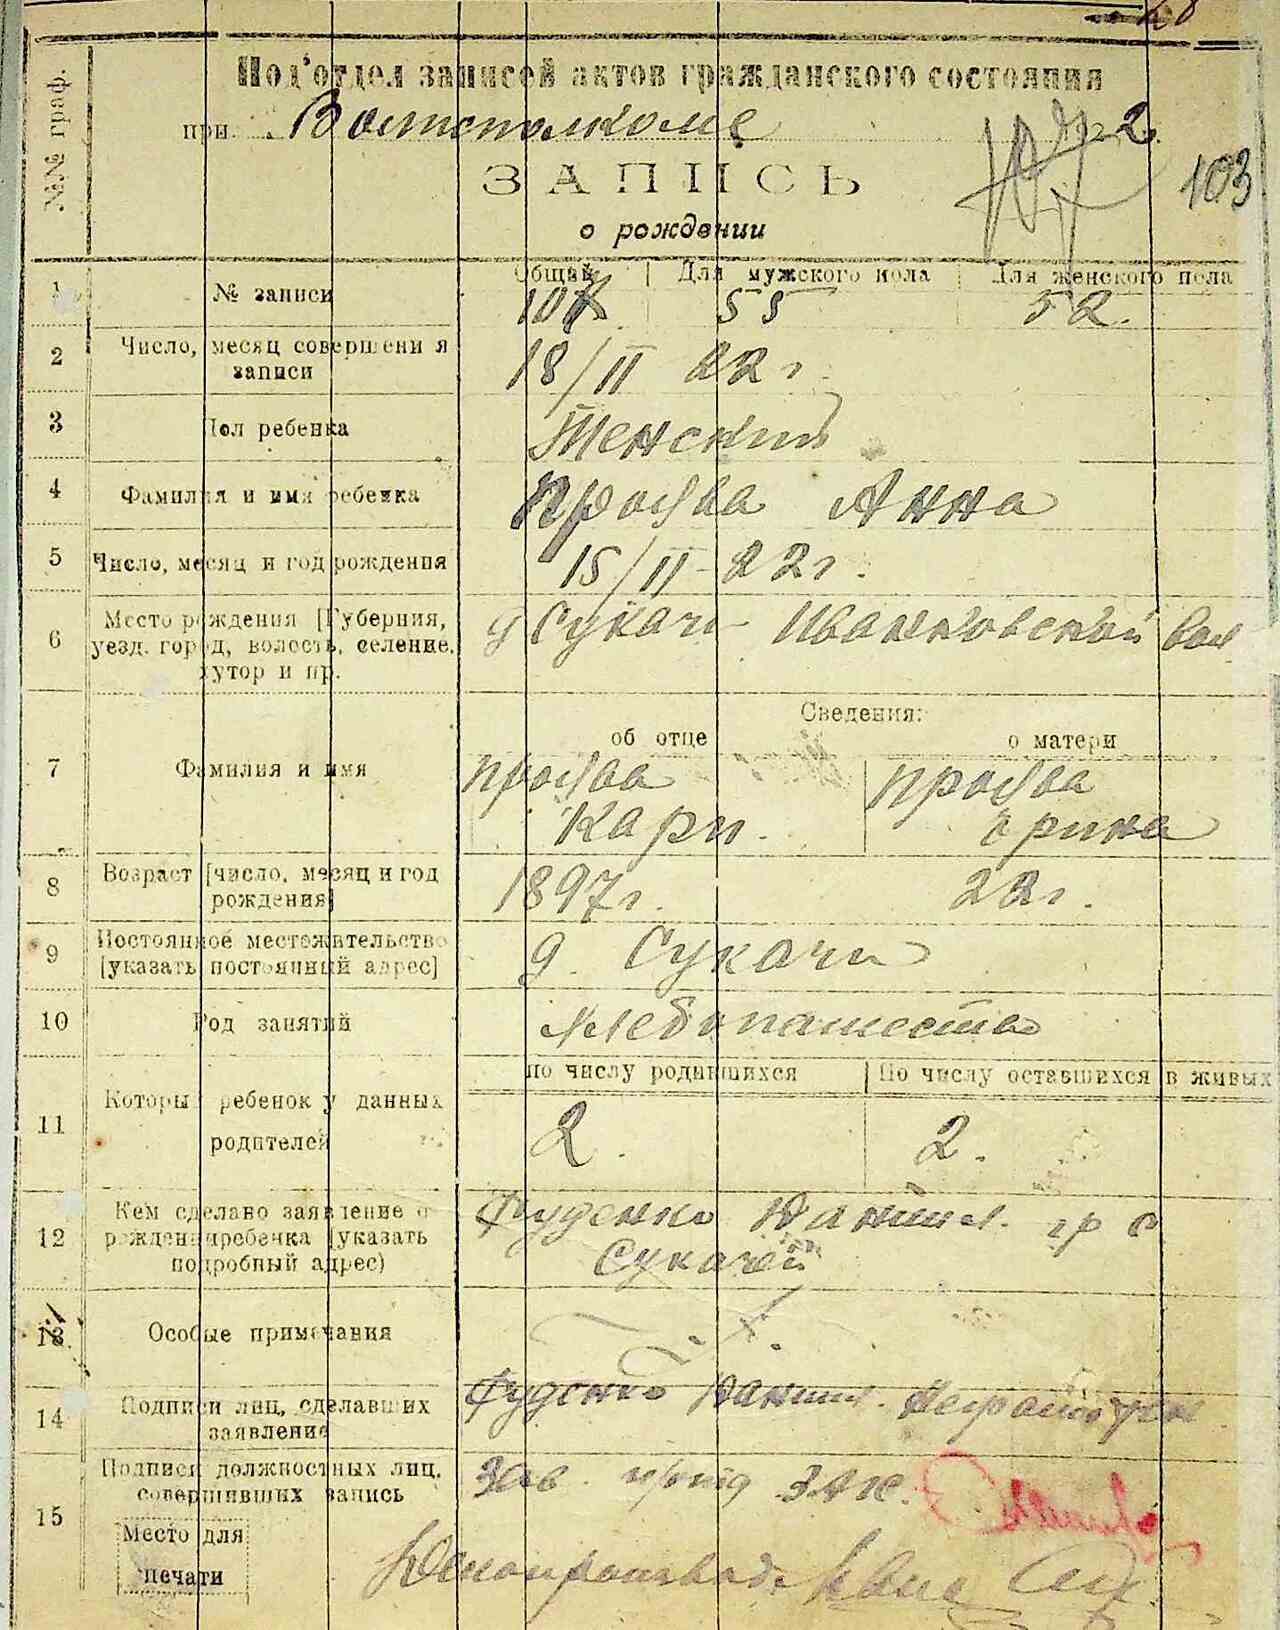 28
Под'отдел записей актов гражданского состояния
№№ граф.
при Волисполкоме 192 2
103
ЗАПИСЬ
о рождении
Общий Для мужского пола Для женского пола
1 № записи 107 55 52.
2 Число, месяц совершения записи 18/II 22 г.
3 Пол ребенка Женский
4 Фамилия и имя ребенка Анна
5 Число, месяц и год рождения 15/II-22г.
6 Место рождения [Губерния, уезд. город, волость, селение, хутор и пр. д Сукачи Иванковской вол
Сведения:
об отце о матери
7 Фамилия и имя
Карп. Ірина
8 Возраст [число, месяц и год рождения] 1897г. 22г.
9 Постоянное местожительство [указать постоянный адрес] д. Сукачи
10 Род занятий Хлебопашество
по числу родившихся По числу оставшихся в живых
11 Которы ребенок у данных родителей 2. 2.
12 Кем сделано заявление о рождении ребенка [указать подробный адрес) Фуденко Даниил. гр с
Сукачей
13 Особые примечания
14 Подписи лиц, сделавших заявление Фуденко Даниил.
15 Подписи должностных лиц, совершивших запись Зав. ЗАГС.
Место для печати Делопроизвод.